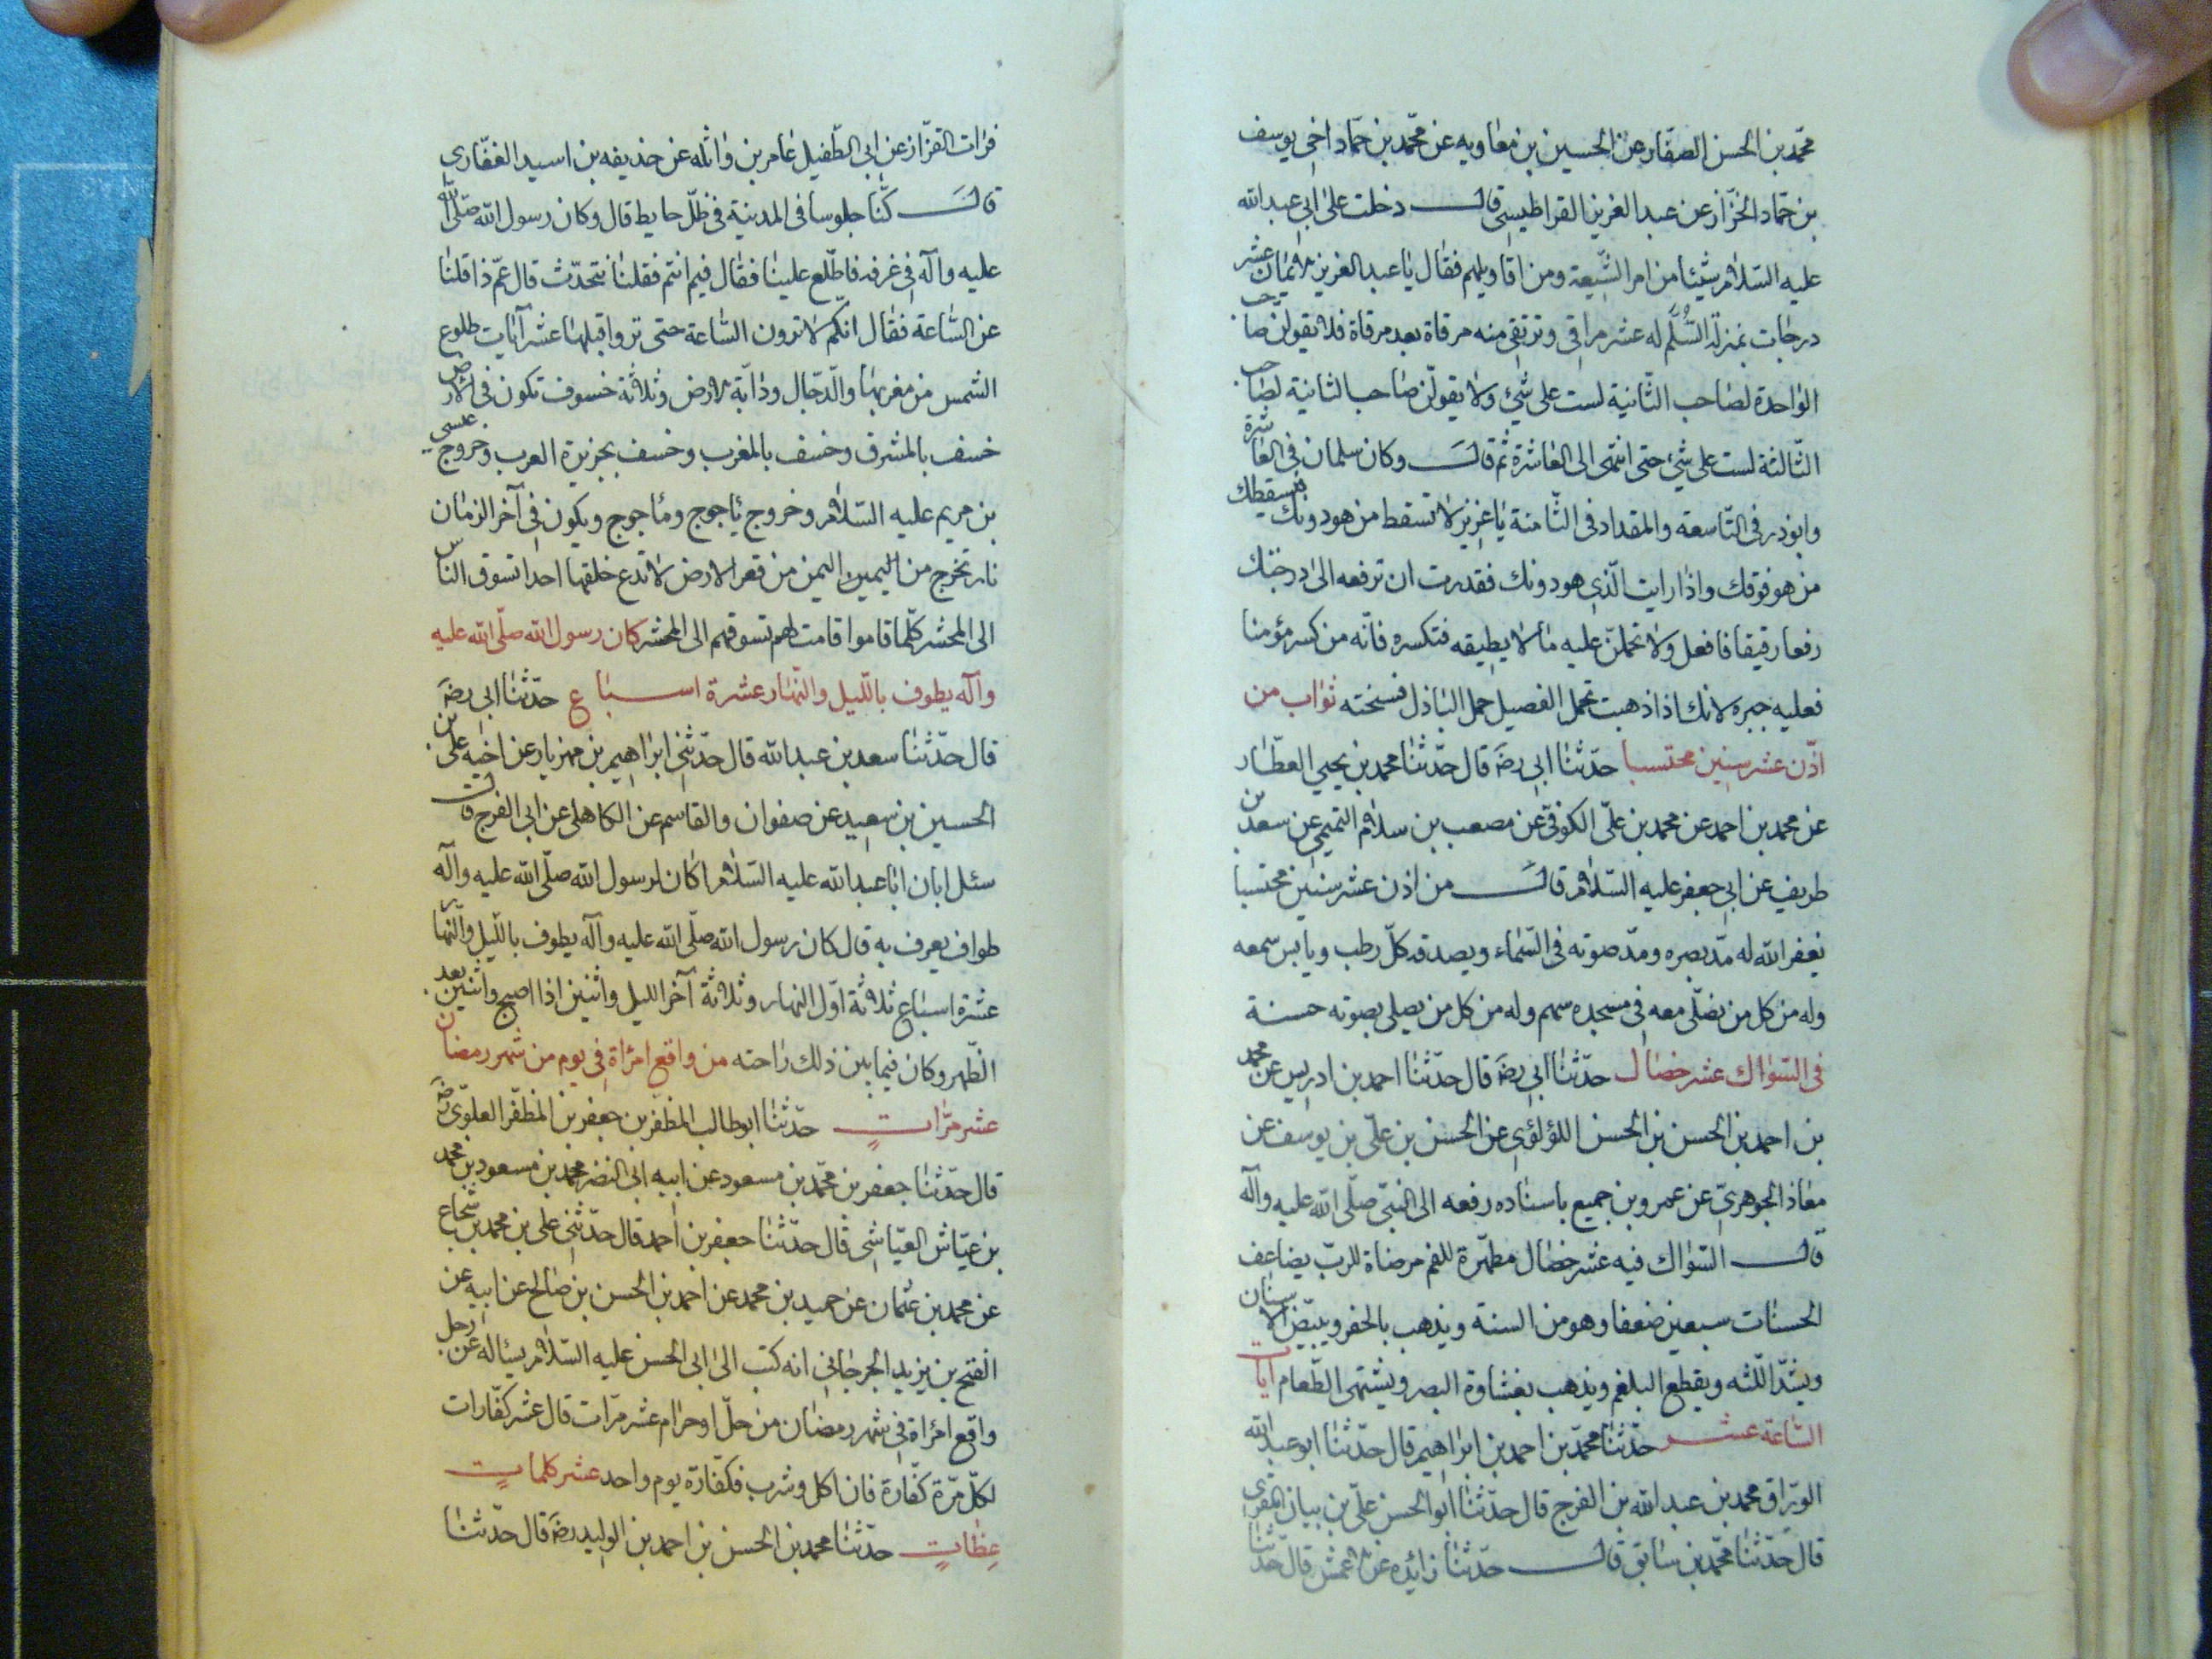 محمّد بن الحسن الصفّار عن الحسين بن معاويه عن محمّد بن حمّاد اخى يوسف
بن حمّاد الخزّاز عن عبد العزيز القراطيسى قال دخلت على ابى عبد الله
عليه السّلام شيئا من امر الشّيعة ومن اقاويلهم فقال يا عبد العزيز الايمان عشر
درجات بمنزلة السُّلَّم له عشر مراقى وترتقى منه مرقاة بعد مرقاة فلا يقولن صاحب
الواحدة لصاحب الثّانية لست على شئ ولا يقولنّ صاحب الثانية لصاحب
الثّالثة لست على شئ حتى انتهى الى العاشرة ثم قال وكان سلمان فى العاشرة
وابوذر فى التّاسعة والمقداد فى الثّامنة يا عزيز لا تسقط من هو دونك فيسقطك
من هو فوقك واذا رايت الّذى هو دونك فقدرت ان ترفعه الى درجتك
رفعا رقيقا فافعل ولا تحملنّ عليه ما لا يطيقه فتكسره فانّه من كسر مؤمنا
فعليه جبره لانك اذا ذهبت تحمل الفصيل حمل الباذل فسخته ثواب من
اذّن عشر سنين محتسبا حدّثنا ابى رضه قال حدّثنا محمد بن يحيى العطّار
عن محمد بن احمد عن محمد بن علىّ الكوفىّ عن مصعب بن سلام التميمى عن سعد بن
طريف عن ابى جعفر عليه السّلام قال من اذن عشر سنين محتسبا
يغفر الله له مدّ بصره ومدّ صوته فى السّماء ويصدقه كلّ رطب ويابس سمعه
وله من كل من يصلّى معه فى مسجده سهم وله من كل من يصلى بصوته حسنة
فى السّواك عشر خصال حدّثنا ابى رضه قال حدّثنا احمد بن ادريس عن محمد
بن احمد بن الحسن بن الحسن اللؤلؤى عن الحسن بن علىّ بن يوسف عن
معاذ الجوهرىّ عن عمرو بن جميع باسناده رفعه الى النبىّ صلّى الله عليه وآله
قال السّواك فيه عشر خصال مطهّرة للفم مرضاة للربّ يضاعف
الحسنات سبعين ضعفا وهو من السنة ويذهب بالحفر ويبيّض الاسنان
ويشدّ اللّثه ويقطع البلغم ويذهب بغشاوة البصر ويشتهى الطّعام ايات
السّاعة عشر حدّثنا محمّد بن احمد بن ابراهيم قال حدّثنا ابو عبد الله
الورّاق محمد بن عبد الله بن الفرج قال حدّثنا ابو الحسن علىّ بن بيان المقرى
قال حدّثنا محمّد بن سابق قال حدّثنا زائده عن الاعمش قال حدّثنا
فرات القزّاز عن ابى الطّفيل عامر بن واثله عن حذيفه بن اسيد الغفّارى
قال كنّا جلوسا فى المدينة فى ظلّ حايط قال وكان رسول الله صلّى الله
عليه وآله فى غرفه فاطّلع علينا فقال فيم انتم فقلنا نتحدّث قال عمّ ذا قلنا
عن السّاعة فقال انكّم لا ترون السّاعة حتى تروا قبلها عشر آيات طلوع
الشمس من مغربها والدّجّال ودابّة الارض وثلاثة خسوف تكون فى الارض
خسف بالمشرق وخسف بالمغرب وخسف بجزيرة العرب وخروج عيسى
بن مريم عليه السّلام وخروج ياجوج وماجوج ويكون فى آخر الزمان
نار تخرج من اليمين اليمن من قعر الارض لا تدع خلفها احدا تسوق الناس
الى المحشر كلّما قاموا قامت لهم تسوقهم الى المحشر كان رسول الله صلّى الله عليه
وآله يطوف باللّيل والنهار عشرة اسباع حدّثنا ابى رضه
قال حدّثنا سعد بن عبد الله قال حدّثنى ابراهيم بن مهزيار عن اخيه على بن
الحسين بن سعيد عن صفوان والقاسم عن الكاهلى عن ابى الفرج قال
سئل ابان ابا عبد الله عليه السّلام اكان لرسول الله صلّى الله عليه وآله
طواف يعرف به قال كان رسول الله صلّى الله عليه وآله يطوف باللّيل والنّهار
عشرة اسباع ثلاثة اوّل النهار وثلاثة آخر الليل واثنين اذا اصبح واثنين بعد
الظّهر وكان فيما بين ذلك راحته من واقع امراة فى يوم من شهر رمضان
عشر مرّاتٍ حدّثنا ابوطالب المظفر بن جعفر بن المظفّر العلوّى رضه
قال حدّثنا جعفر بن محمّد بن مسعود عن ابيه ابى النضر محمد بن مسعود بن محمد
بن عيّاش العيّاشى قال حدّثنا جعفر بن احمد قال حدّثنى على بن محمد بن شجاع
عن محمد بن عثمان عن حميد بن محمد عن احمد بن الحسن بن صالح عن ابيه عن
الفتح بن يزيد الجرجانى انه كتب الى ابى الحسن عليه السّلام يسأله عن رجل
واقع امراة فى شهر رمضان من حلّ او حرام عشر مرّات قال عشر كفّارات
لكلّ مرّة كفّارة فان اكل وشرب فكفّارة يوم واحد عشر كلماتٍ
عِظاتٍ حدّثنا محمد بن الحسن بن احمد بن الوليد رضه قال حدّثنا